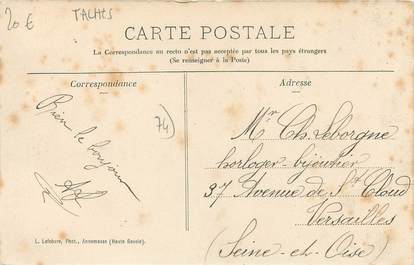 20€ TACHES
CARTE POSTALE
La Correspondance au recto n'est pas acceptée par tous les pays étrangers
(Se renseigner à la Poste)
Correspondance
Adresse
Bien le bonjour
74
Mr Ch. Leborgne
horloger-bijoutier
37 Avenue de St Cloud
Versailles
(Seine-et-Oise)
L. Lefebvre, Phot., Annemasse (Haute Savoie).